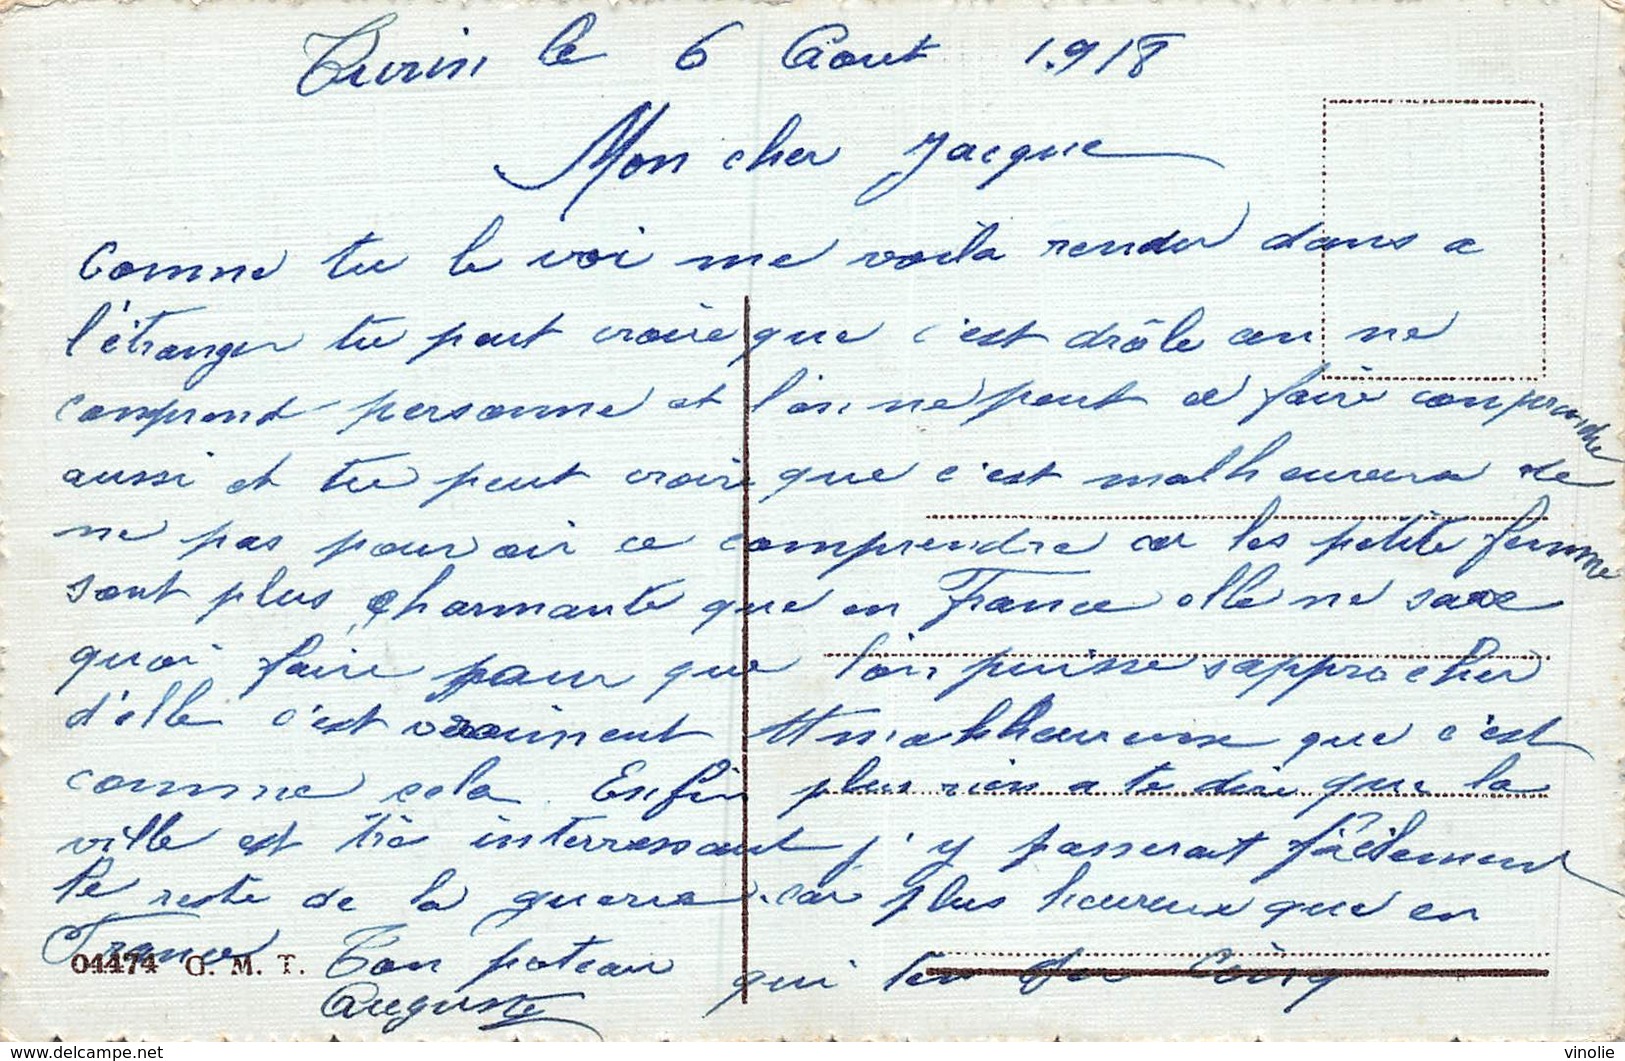 Turin le 6 Aout 1918
Mon cher Jacque
Comme tu le voi me voila rendu dans a
l'étranger tu peut croire que c'est drôle on ne
comprend personne et l'on ne peut ce faire comprendre
aussi et tu peut croire que c'est malheureux de
ne pas pouvoir ce comprendre car les petite femme
sont plus charmante que en France elle ne save
quoi faire pour que l'on puisse sapprocher
d'elle c'est vraiment malheureuse que c'est
comme cela. Enfin plus rien a te dire que la
ville est trè interressant j'y passerait facilement
le reste de la guerre car plus heureux que en
France Ton poteau qui ten Cinq
Auguste
04474 G. M. T.
vinolie
https://www.delcampe.net